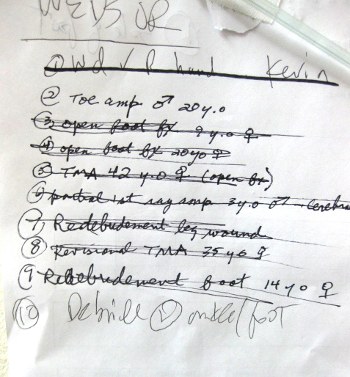 WEDS OR
① wd √ R hand Kevin
② Toe amp ♂ 20 y.o
③ open foot fx 9 y.o ♀
④ open foot fx 20 yo ♀
⑤ TMA 42 y.o ♀ (open fx)
⑥ partial 1st ray amp 3 y.o ♂
⑦ Redebridement leg wound
⑧ Revisional TMA 35 yo ♀
⑨ Redebridement foot 14 yo ♀
⑩ Debride Ⓛ ankle/foot